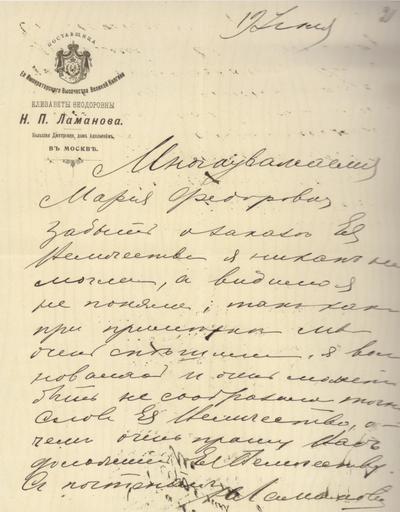 17 Июня
ПОСТАВЩИЦА
Ея Императорскаго Высочества Великой Княгини
ЕЛИЗАВЕТЫ ѲЕОДОРОВНЫ
Н. П. Ламанова.
Большая Дмитровка, домъ Адельгеймъ,
ВЪ МОСКВѢ.
Многоуважаемая
Марія Федоровна
Забыть о заказѣ Ея
Величества я никакъ не
могла, а видимо я
не поняла, такъ какъ
при примѣркѣ мы
очень спѣшили, я вол
новалась и очень можетъ
быть не сообразила точно
слова Ея Величества, о
чемъ очень прошу Васъ
доложить Ея Величеству.
Съ почтеніемъ Н Ламанова